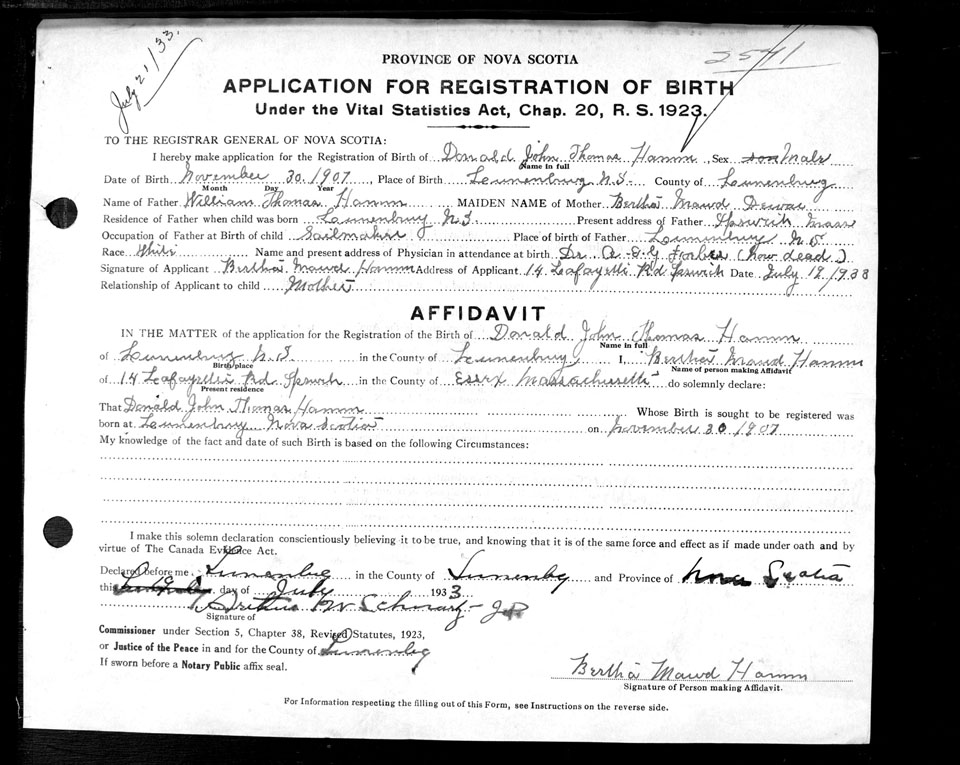 July 21/33.
2571
PROVINCE OF NOVA SCOTIA
APPLICATION FOR REGISTRATION OF BIRTH
Under the Vital Statistics Act, Chap. 20, R. S. 1923.
TO THE REGISTRAR GENERAL OF NOVA SCOTIA:
I hereby make application for the Registration of Birth of Donald John Thomas Hamm, Sex Male
Name in full
Date of Birth November 30. 1907, Place of Birth Lunenburg N.S. County of Lunenburg
Month Day Year
Name of Father William Thomas Hamm MAIDEN NAME of Mother Bertha Maud Dewar
Residence of Father when child was born Lunenburg N.S. Present address of Father Ipswich Mass
Occupation of Father at Birth of child Sailmaker Place of birth of Father Lunenburg N.S
Race White Name and present address of Physician in attendance at birth Dr. Forbes (now dead.)
Signature of Applicant Bertha Maud Hamm Address of Applicant 14 Lafayette Rd Ipswich Date July 18 1933
Relationship of Applicant to child Mother
AFFIDAVIT
IN THE MATTER of the application for the Registration of the Birth of Donald John Thomas Hamm
Name in full
of Lunenburg N.S in the County of Lunenburg, I, Bertha Maud Hamm
Birth place Name of person making Affidavit
of 14 Lafayette Rd Ipswich in the County of Essex Massachusetts do solemnly declare:
Present residence
That Donald John Thomas Hamm Whose Birth is sought to be registered was
born at Lunenburg Nova Scotia on November 30 1907
My knowledge of the fact and date of such Birth is based on the following Circumstances:
I make this solemn declaration conscientiously believing it to be true, and knowing that it is of the same force and effect as if made under oath and by
virtue of The Canada Evidence Act.
Declared before me, Lunenbg in the County of Lunenbg and Province of Nova Scotia
this day of July 1933
Arthur W Schwartz J.P.
Signature of
Commissioner under Section 5, Chapter 38, Revised Statutes, 1923,
or Justice of the Peace in and for the County of Lunenbg
If sworn before a Notary Public affix seal.
Bertha Maud Hamm
Signature of Person making Affidavit.
For Information respecting the filling out of this Form, see Instructions on the reverse side.